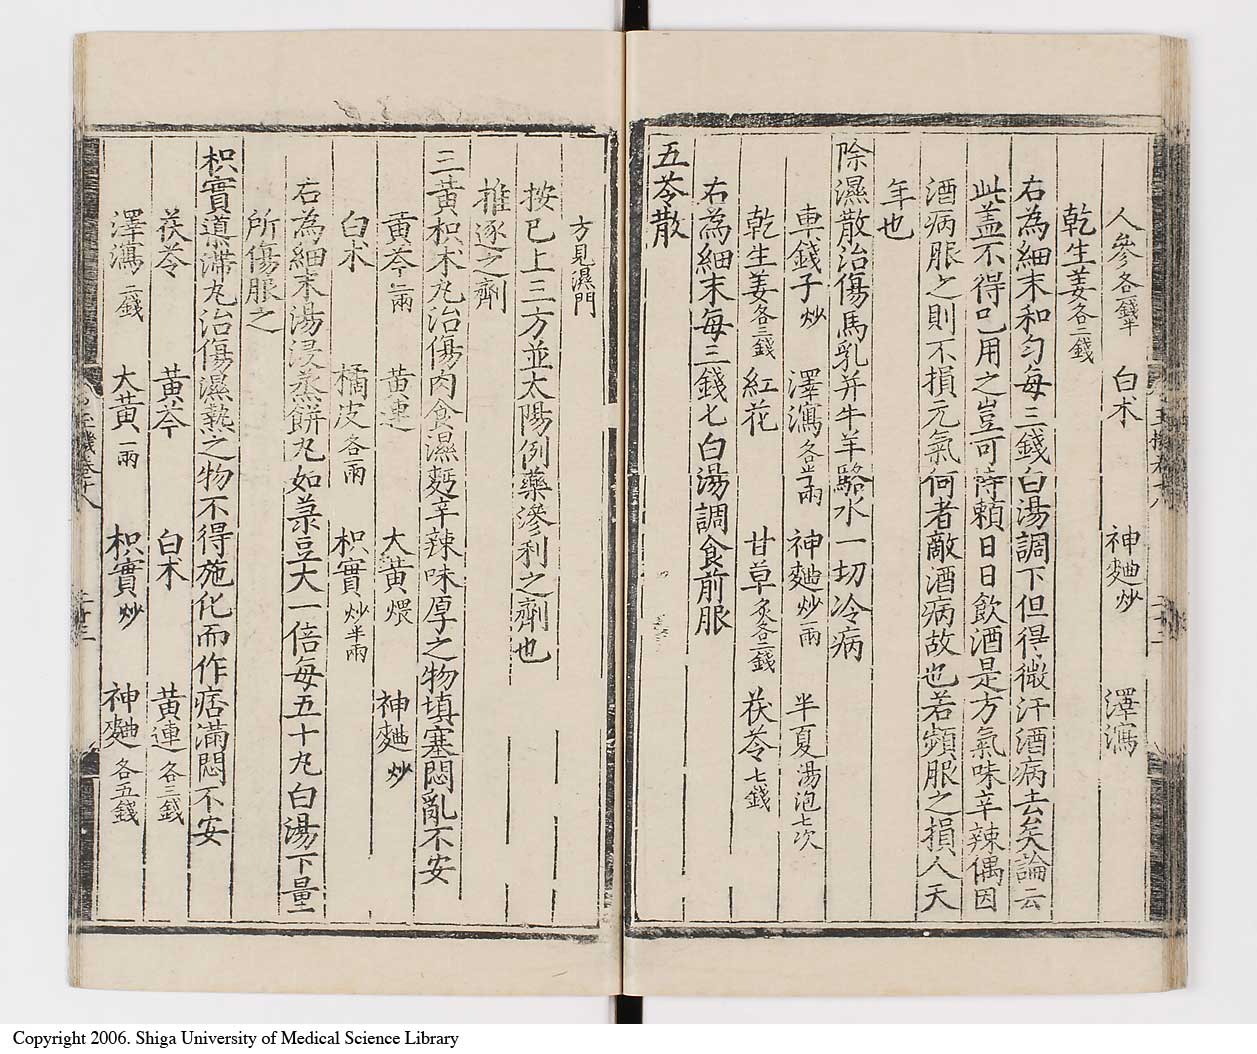 人參各一錢半 白术 神麯炒 澤瀉
乾生姜各二錢
右為細末和匀每三錢白湯調下但得微汗酒病去矣論云
此盖不得已用之豈可恃頼日日飲酒是方氣味辛辣偶因
酒病服之則不損元氣何者敵酒病故也若頻服之損人天
年也
除濕散治傷馬乳并牛羊酪水一切冷病
車錢子炒 澤瀉各半兩 神麯炒一兩 半夏湯泡七次
乾生姜各三錢 紅花 甘草炙各二錢 茯苓七錢
右為細末每三錢匕白湯調食前服
五苓散
方見濕門
按已上三方並太陽例藥滲利之劑也
推逐之劑
三黃枳术丸治傷肉食濕麪辛辣味厚之物填塞悶亂不安
黄芩二兩 黄連 大黄煨 神麯炒
白术 橘皮各一兩 枳實炒半兩
右為細末湯浸蒸餅丸如菉豆大一倍每五十丸白湯下量
所傷服之
枳實導滯丸治傷濕熱之物不得施化而作痞滿悶不安
茯苓 黄芩 白术 黄連各三錢
澤瀉二錢 大黄一兩 枳實炒 神麯各五錢